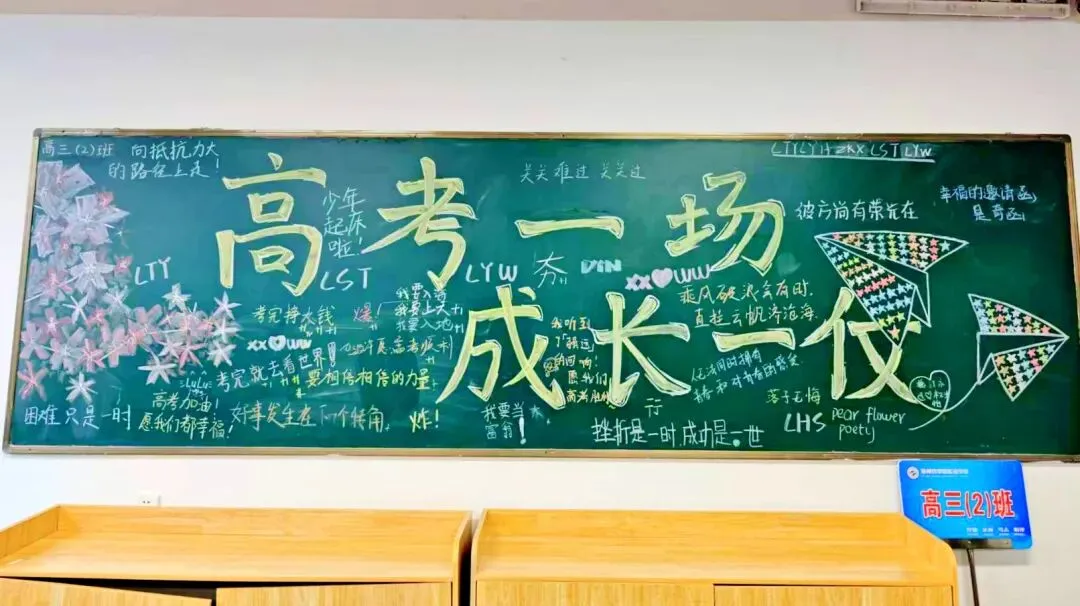 高三(2)班
向抵抗力大
的路径上走!
高考一场
成长一仗
少年
起床
啦!
关关难过 关关过
LTYLYH ZKX LST LYW
彼方尚有荣光在
幸福的邀请函
是奇函
LTY
LST
LYW
夯
xx♥ww
乘风破浪会有时
直挂云帆济沧海
考完挣大钱
爆!
我要入地
xx♥ww
考完就去看世界!!
要相信相信的力量
我听到
了
的回响!
愿我们
高考
LuLu
高考加油!
愿我们都幸福!
困难只是一时
好事发生在下个转角
炸!
我要当
富翁!
行
挫折是一时,成功是一世
落子无悔
LHS
pear flower
poetry
高三(2)班